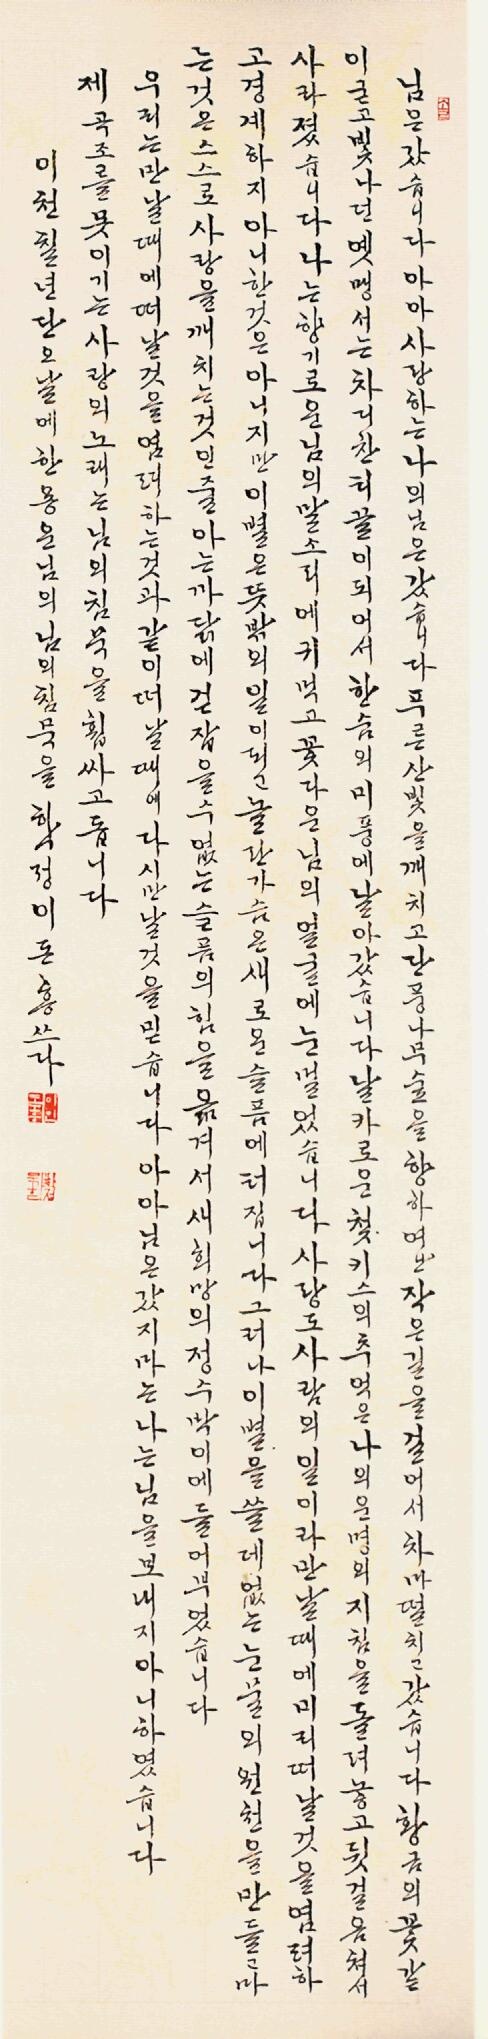 님은갔습니다아아사랑하는나의님은갔습니다푸른산빛을깨치고단풍나무숲을향하여난작은길을걸어서차마떨치고갔습니다황금의꽃같
이굳고빛나던옛맹서는차디찬티끌이되어서한숨의미풍에날아갔습니다날카로운첫키스의추억은나의운명의지침을돌려놓고뒷걸음쳐서
사라졌습니다나는향기로운님의말소리에귀먹고꽃다운님의얼굴에눈멀었습니다사랑도사람의일이라만날때에미리떠날것을염려하
고경계하지아니한것은아니지만이별은뜻밖의일이되고놀란가슴은새로운슬픔에터집니다그러나이별을쓸데없는눈물의원천을만들고마
는것은스스로사랑을깨치는것인줄아는까닭에걷잡을수없는슬픔의힘을옮겨서새희망의정수박이에들어부었습니다
우리는만날때에떠날것을염려하는것과같이떠날때에다시만날것을믿습니다아아님은갔지마는나는님을보내지아니하였습니다
제곡조를못이기는사랑의노래는님의침묵을휩싸고돕니다
이천칠년단오날에한용운님의님의침묵을학정이돈흥쓰다